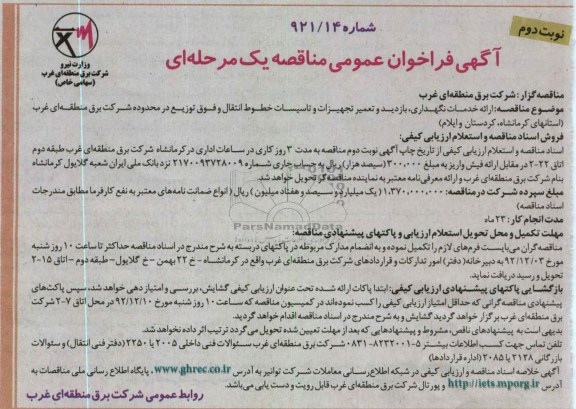 شماره ۹۲۱/۱۴
نوبت دوم
وزارت نیرو
شرکت برق منطقه‌ای غرب
(سهامی خاص)
آگهی فراخوان عمومی مناقصه یک مرحله‌ای
مناقصه‌گزار: شرکت برق منطقه‌ای غرب
موضوع مناقصه: ارائه خدمات نگهداری، بازدید و تعمیر تجهیزات و تاسیسات خطوط انتقال و فوق توزیع در محدوده شرکت برق منطقه‌ای غرب
(استانهای کرمانشاه، کردستان و ایلام)
فروش اسناد مناقصه و استعلام ارزیابی کیفی:
اسناد مناقصه و استعلام ارزیابی کیفی از تاریخ چاپ آگهی نوبت دوم مناقصه به مدت ۳ روز کاری در ساعات اداری در کرمانشاه شرکت برق منطقه‌ای غرب طبقه دوم
اتاق ۲۲-۲ در مقابل ارائه فیش واریز به مبلغ ۳۰۰،۰۰۰ (سیصد هزار) ریال به حساب جاری شماره ۲۱۷۰۰۹۳۷۲۸۰۰۹ نزد بانک ملی ایران شعبه گلایول کرمانشاه
بنام شرکت برق منطقه‌ای غرب و ارائه معرفی‌نامه معتبر به نماینده مناقصه‌گر تحویل خواهد شد.
مبلغ سپرده شرکت در مناقصه: ۱،۳۷۰،۰۰۰،۰۰۰ (یک میلیارد و سیصد و هفتاد میلیون) ریال (انواع ضمانت نامه‌های معتبر به نفع کارفرما مطابق مندرجات
اسناد مناقصه)
مدت انجام کار: ۲۳ ماه
مهلت تکمیل و محل تحویل استعلام ارزیابی و پاکتهای پیشنهادی مناقصه:
مناقصه گران می‌بایست فرم‌های لازم را تکمیل نموده و به انضمام مدارک مربوطه در پاکتهای دربسته به شرح مندرج در اسناد مناقصه حداکثر تا ساعت ۱۰ روز شنبه
مورخ ۹۲/۱۲/۰۳ به دبیرخانه (دفتر) امور تدارکات و قراردادهای شرکت برق منطقه‌ای غرب واقع در کرمانشاه - خ ۲۲ بهمن - خ گلایول - طبقه دوم - اتاق ۱۵-۲
تحویل و رسید دریافت نماید.
بازگشایی پاکتهای پیشنهادی ارزیابی کیفی: ابتدا پاکات ارائه شده تحت عنوان ارزیابی کیفی گشایش، بررسی و امتیاز دهی خواهد شد، سپس پاکت‌های
پیشنهادی مناقصه گرانی که حداقل امتیاز ارزیابی کیفی را کسب نموده‌اند در کمیسیون مناقصه که ساعت ۱۰ روز شنبه مورخ ۹۲/۱۲/۱۰ در محل اتاق ۷-۲ شرکت
برق منطقه‌ای غرب برگزار خواهد گردید گشایش و به شرح مندرج در اسناد مناقصه اقدام خواهد گردید.
بدیهی است به پیشنهادهای ناقص، مشروط و پیشنهادهایی که بعد از مهلت تعیین شده تحویل می گردد ترتیب اثر داده نخواهد شد.
تلفن تماس جهت کسب اطلاعات بیشتر ۵-۸۲۳۲۰۰۱-۰۸۳۱ شرکت برق منطقه‌ای غرب سئوالات فنی داخلی ۲۰۰۵ یا ۲۲۵۰ (دفتر فنی انتقال) و سئوالات
بازرگانی ۲۱۲۸ یا ۲۰۸۵ (اداره قراردادها)
آگهی خلاصه اسناد مناقصه و ارزیابی کیفی در شبکه اطلاع‌رسانی معاملات شرکت توانیر به آدرس www.ghrec.co.ir، پایگاه اطلاع رسانی ملی مناقصات به
آدرس http://iets.mporg.ir و پورتال شرکت برق منطقه‌ای غرب قابل رویت و دست یابی می‌باشد.
روابط عمومی شرکت برق منطقه‌ای غرب
ParsNamadData